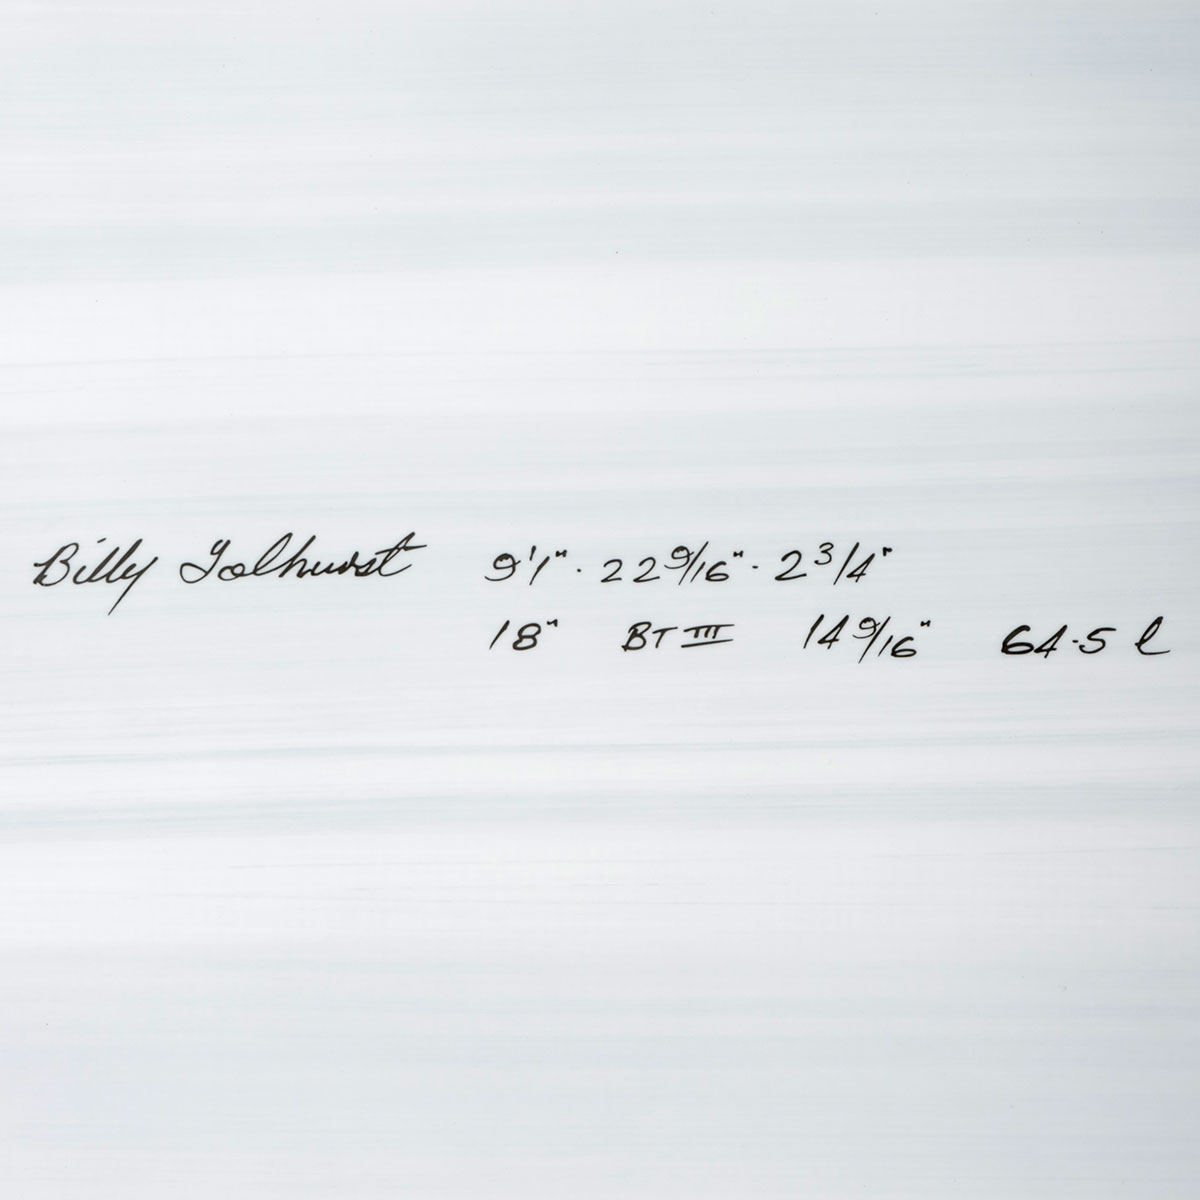 Billy Tolhurst 9'1" · 22 9/16" · 2 3/4"
18" BT III 14 9/16" 64·5 l